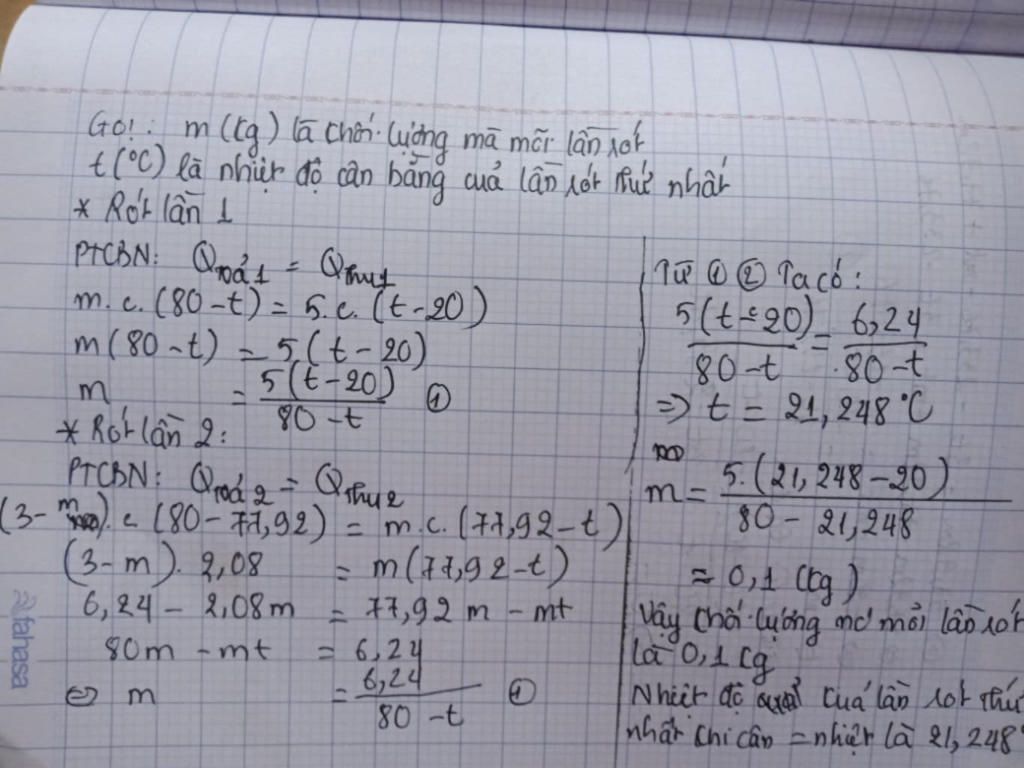 Gọi: m (kg) là khối lượng mà mỗi lần rót
t (°C) là nhiệt độ cân bằng của lần rót thứ nhất
* Rót lần 1
PTCBN: Qtoả1 = Qthu1
m.c.(80-t) = 5.c.(t-20)
m(80-t) = 5(t-20)
m = 5(t-20) / 80-t ①
* Rót lần 2:
PTCBN: Qtoả2 = Qthu2
(3-m).c(80-77,92) = m.c.(77,92-t)
(3-m).2,08 = m(77,92-t)
6,24 - 2,08m = 77,92m - mt
80m - mt = 6,24
⇔ m = 6,24 / 80-t ①
Từ ① ② Ta có:
5(t-20) / 80-t = 6,24 / 80-t
=> t = 21,248°C
m = 5.(21,248-20) / 80-21,248
= 0,1 (kg)
Vậy khối lượng mà mỗi lần rót
là 0,1 kg
Nhiệt độ của lần rót thứ
nhất khi cân = nhiệt là 21,248°
2fahasa